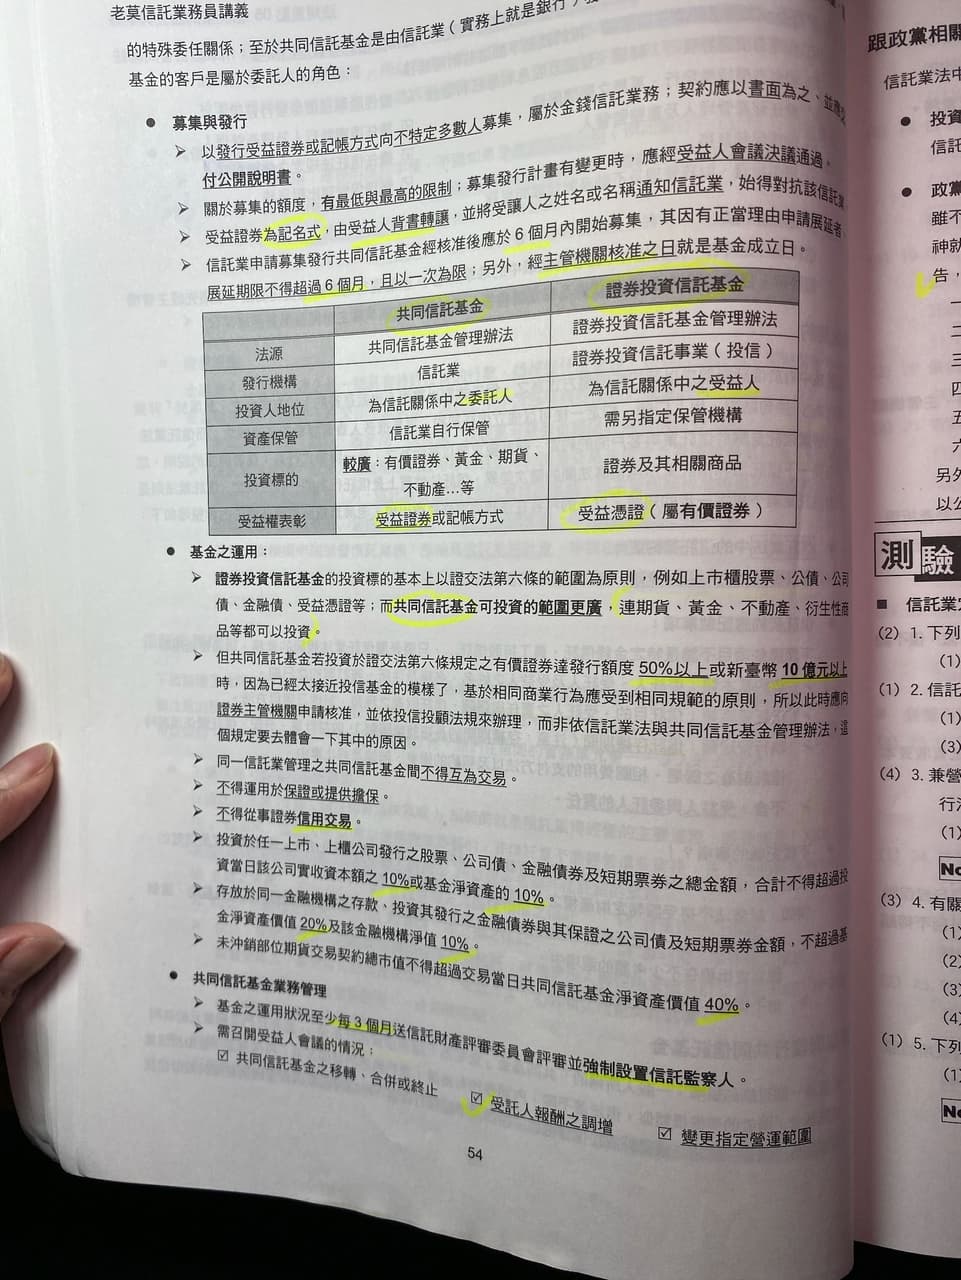 老莫信託業務員講義
的特殊委任關係；至於共同信託基金是由信託業（實務上就是銀行）
基金的客戶是屬於委託人的角色：
● 募集與發行
➢ 以發行受益證券或記帳方式向不特定多數人募集，屬於金錢信託業務；契約應以書面為之、並應交
付公開說明書。
➢ 關於募集的額度，有最低與最高的限制；募集發行計畫有變更時，應經受益人會議決議通過。
➢ 受益證券為記名式，由受益人背書轉讓，並將受讓人之姓名或名稱通知信託業，始得對抗該信託業
➢ 信託業申請募集發行共同信託基金經核准後應於 6 個月內開始募集，其因有正當理由申請展延者
展延期限不得超過 6 個月，且以一次為限；另外，經主管機關核准之日就是基金成立日。
共同信託基金 證券投資信託基金
法源 共同信託基金管理辦法 證券投資信託基金管理辦法
發行機構 信託業 證券投資信託事業（投信）
投資人地位 為信託關係中之委託人 為信託關係中之受益人
資產保管 信託業自行保管 需另指定保管機構
投資標的 較廣：有價證券、黃金、期貨、
不動產...等 證券及其相關商品
受益權表彰 受益證券或記帳方式 受益憑證（屬有價證券）
● 基金之運用：
➢ 證券投資信託基金的投資標的基本上以證交法第六條的範圍為原則，例如上市櫃股票、公債、公司
債、金融債、受益憑證等；而共同信託基金可投資的範圍更廣，連期貨、黃金、不動產、衍生性商
品等都可以投資。
➢ 但共同信託基金若投資於證交法第六條規定之有價證券達發行額度 50%以上或新臺幣 10 億元以上
時，因為已經太接近投信基金的模樣了，基於相同商業行為應受到相同規範的原則，所以此時應向
證券主管機關申請核准，並依投信投顧法規來辦理，而非依信託業法與共同信託基金管理辦法，這
個規定要去體會一下其中的原因。
➢ 同一信託業管理之共同信託基金間不得互為交易。
➢ 不得運用於保證或提供擔保。
➢ 不得從事證券信用交易。
➢ 投資於任一上市、上櫃公司發行之股票、公司債、金融債券及短期票券之總金額，合計不得超過投
資當日該公司實收資本額之 10%或基金淨資產的 10%。
➢ 存放於同一金融機構之存款、投資其發行之金融債券與其保證之公司債及短期票券金額，不超過基
金淨資產價值 20%及該金融機構淨值 10%。
➢ 未沖銷部位期貨交易契約總市值不得超過交易當日共同信託基金淨資產價值 40%。
● 共同信託基金業務管理
➢ 基金之運用狀況至少每 3 個月送信託財產評審委員會評審並強制設置信託監察人。
➢ 需召開受益人會議的情況：
☑ 共同信託基金之移轉、合併或終止 ☑ 受託人報酬之調增 ☑ 變更指定營運範圍
54
跟政黨相關
信託業法中
● 投資
信託
● 政黨
雖不
神就
告，
一
二
三
四
五
六
另外
以公
測驗
■ 信託業
（2）1. 下列
（1）
（1）2. 信託
（1）
（3）
（4）3. 兼營
行
（1）
（3）4. 有關
（1）
（2）
（3）
（4）
（1）5. 下列
（1）